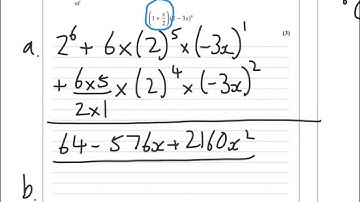 of
(1 + x/2)(2 − 3x)⁶
(3)
a. 2⁶ + 6 × (2)⁵ × (-3x)¹
+ 6×5/2×1 × (2)⁴ × (-3x)²
64 - 576x + 2160x²
b.